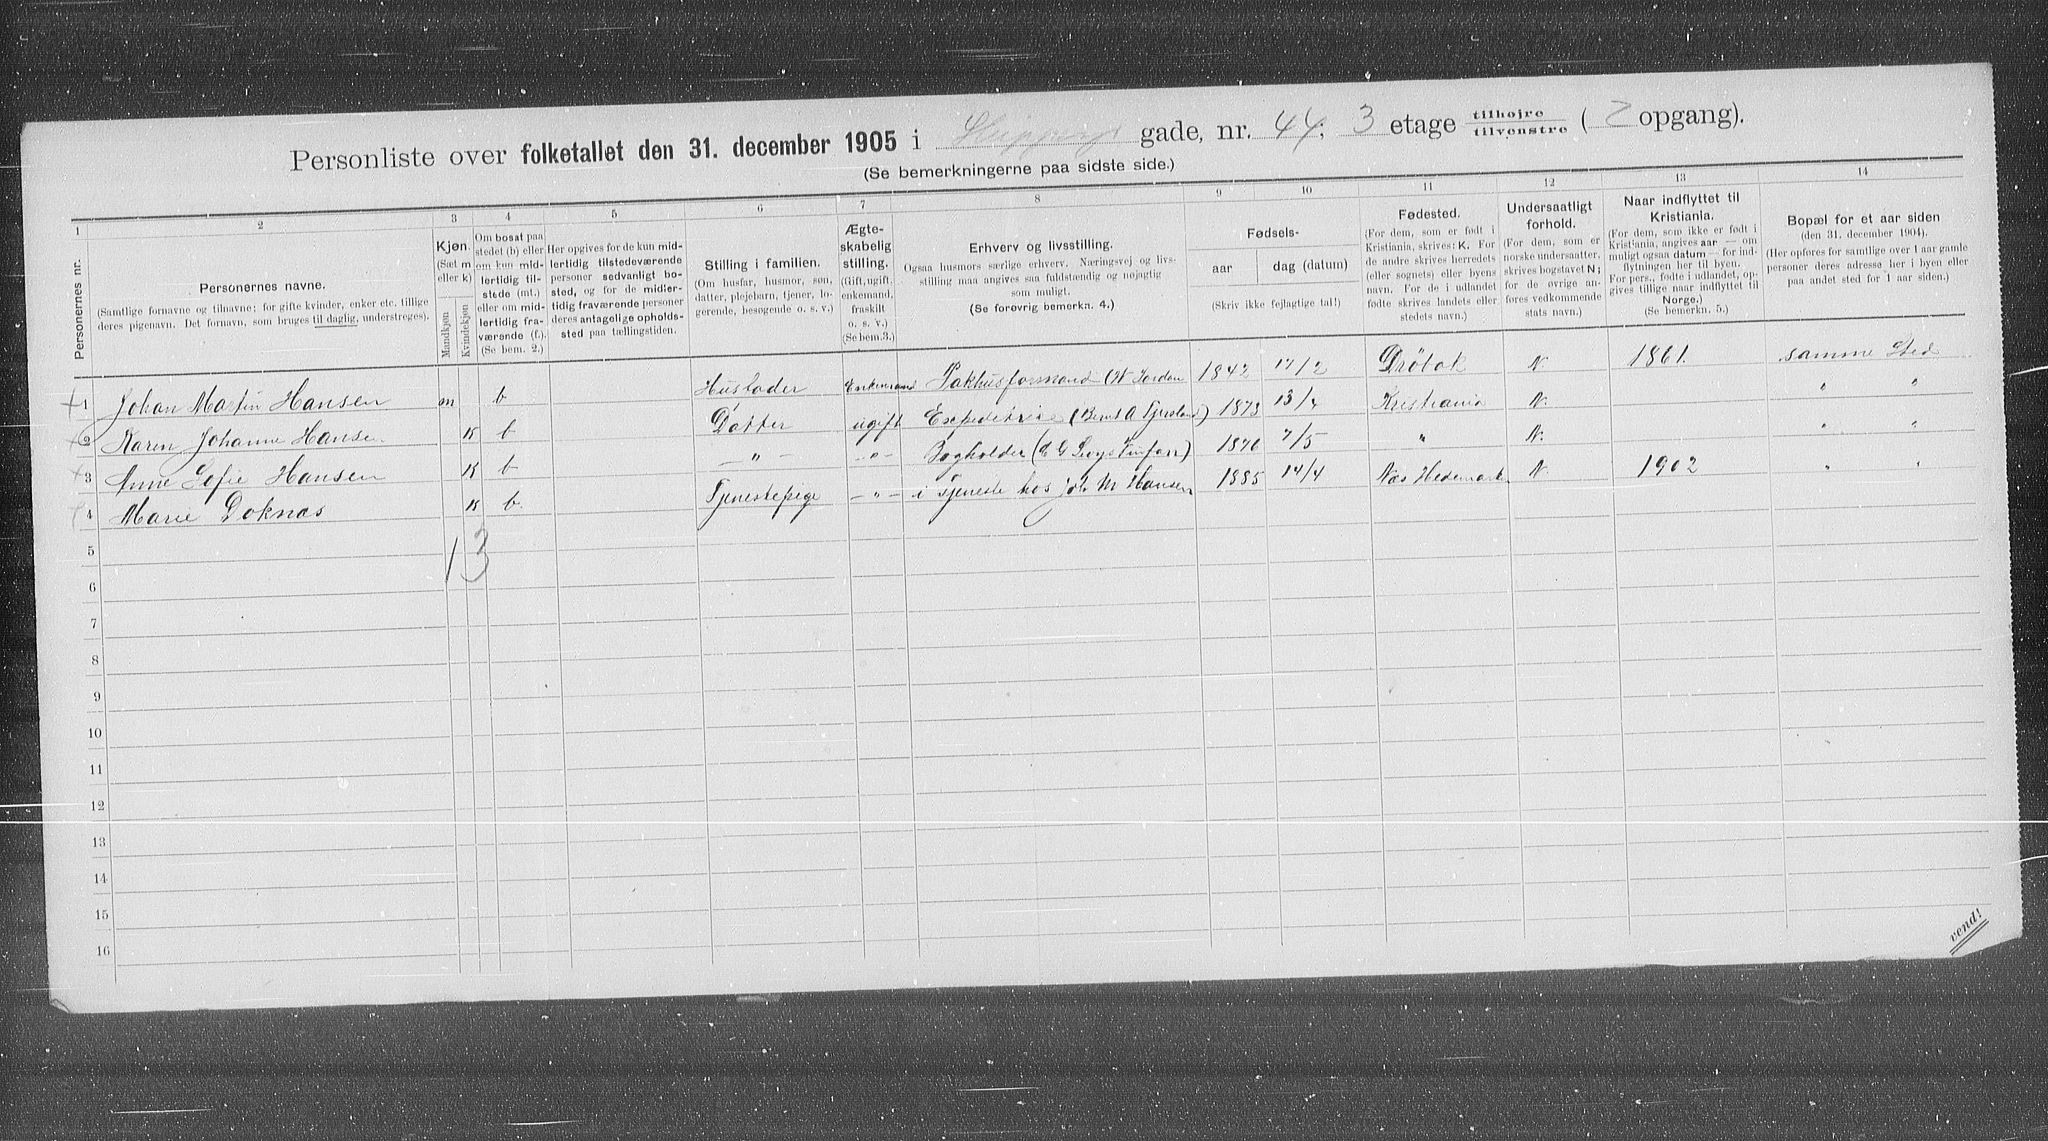 Personliste over folketallet den 31. december 1905 i Skippergs gade, nr. 44; 3 etage tilhøjre / tilvenstre ( 2 opgang).
(Se bemerkningerne paa sidste side.)
1 2 3 4 5 6 7 8 9 10 11 12 13 14
Personernes nr.
Personernes navne.
(Samtlige fornavne og tilnavne; for gifte kvinder, enker etc. tillige
deres pigenavn. Det fornavn, som bruges til daglig, understreges).
Kjøn.
(Sæt m
eller k)
Mandkjøn
Kvindekjøn
Om bosat paa
stedet (b) eller
om kun mid-
lertidig til-
stede (mt.)
eller om mid-
lertidig fra-
værende (f.).
(Se bem. 2.)
Her opgives for de kun mid-
lertidig tilstedeværende
personer sedvanligt bo-
sted, og for de midler-
tidig fraværende personer
deres antagelige opholds-
sted paa tællingstiden.
Stilling i familien.
(Om husfar, husmor, søn,
datter, plejebarn, tjener, lo-
gerende, besøgende o. s. v.)
Ægte-
skabelig
stilling.
(Gift, ugift,
enkemand,
fraskilt
o. s. v.)
(Se bem.3.)
Erhverv og livsstilling.
Ogsaa husmors særlige erhverv. Næringsvej og livs-
stilling maa angives saa fuldstændig og nøjagtig
som muligt.
(Se forøvrig bemerkn. 4.)
Fødsels-
aar
dag (datum)
(Skriv ikke fejlagtige tal!)
Fødested.
(For dem, som er født i
Kristiania, skrives: K. For
de andre skrives herredets
(eller sognets) eller byens
navn. For de i udlandet
fødte skrives landets eller
stedets navn.)
Undersaatligt
forhold.
(For dem, som er
norske undersaatter,
skrives bogstavet N;
for de øvrige an-
føres vedkommende
stats navn.)
Naar indflyttet til
Kristiania.
(For dem, som ikke er født i
Kristiania, angives aar — om
muligt ogsaa datum — for ind-
flytningen her til byen.
For pers., fødte i udlandet, op-
gives tillige naar indflyttet til
Norge.)
(Se bemerkn. 5.)
Bopæl for et aar siden
(den 31. december 1904).
(Her opføres for samtlige over 1 aar gamle
personer deres adresse her i byen eller
paa andet sted for 1 aar siden.)
1 Johan Martin Hansen m b Husfader Enkemand Pakhusformand (W Jordan 1842 17/2 Drøbak N 1861. samme Sted
2 Karen Johanne Hansen K b Datter ugift Expeditrice (Bernt A Fjersland) 1873 13/4 Kristiania N. " "
3 Anne Sofie Hansen K b — " — — " — Bogholder (E G 1876 7/5 " N. " "
4 Marie Doknæs K b. Tjenestepige — " — i Tjeneste hos Joh M Hansen 1885 14/4 Næs Hedemark N. 1902 " "
5
1 3
6
7
8
9
10
11
12
13
14
15
16
vend!